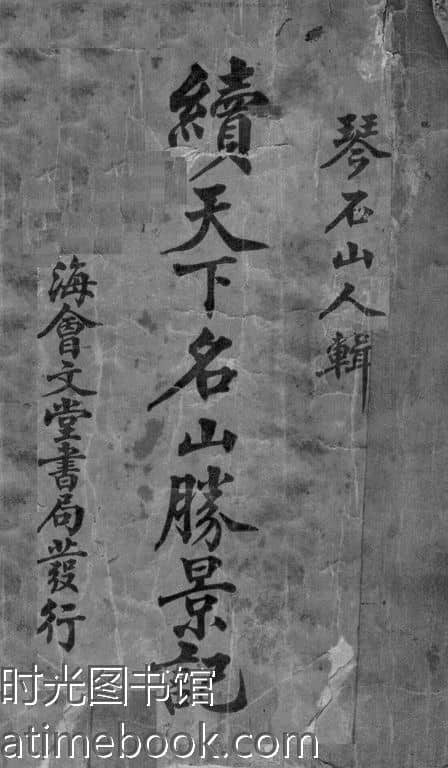 琴石山人輯
續天下名山勝景記
海會文堂書局發行
时光图书馆
atimebook.com